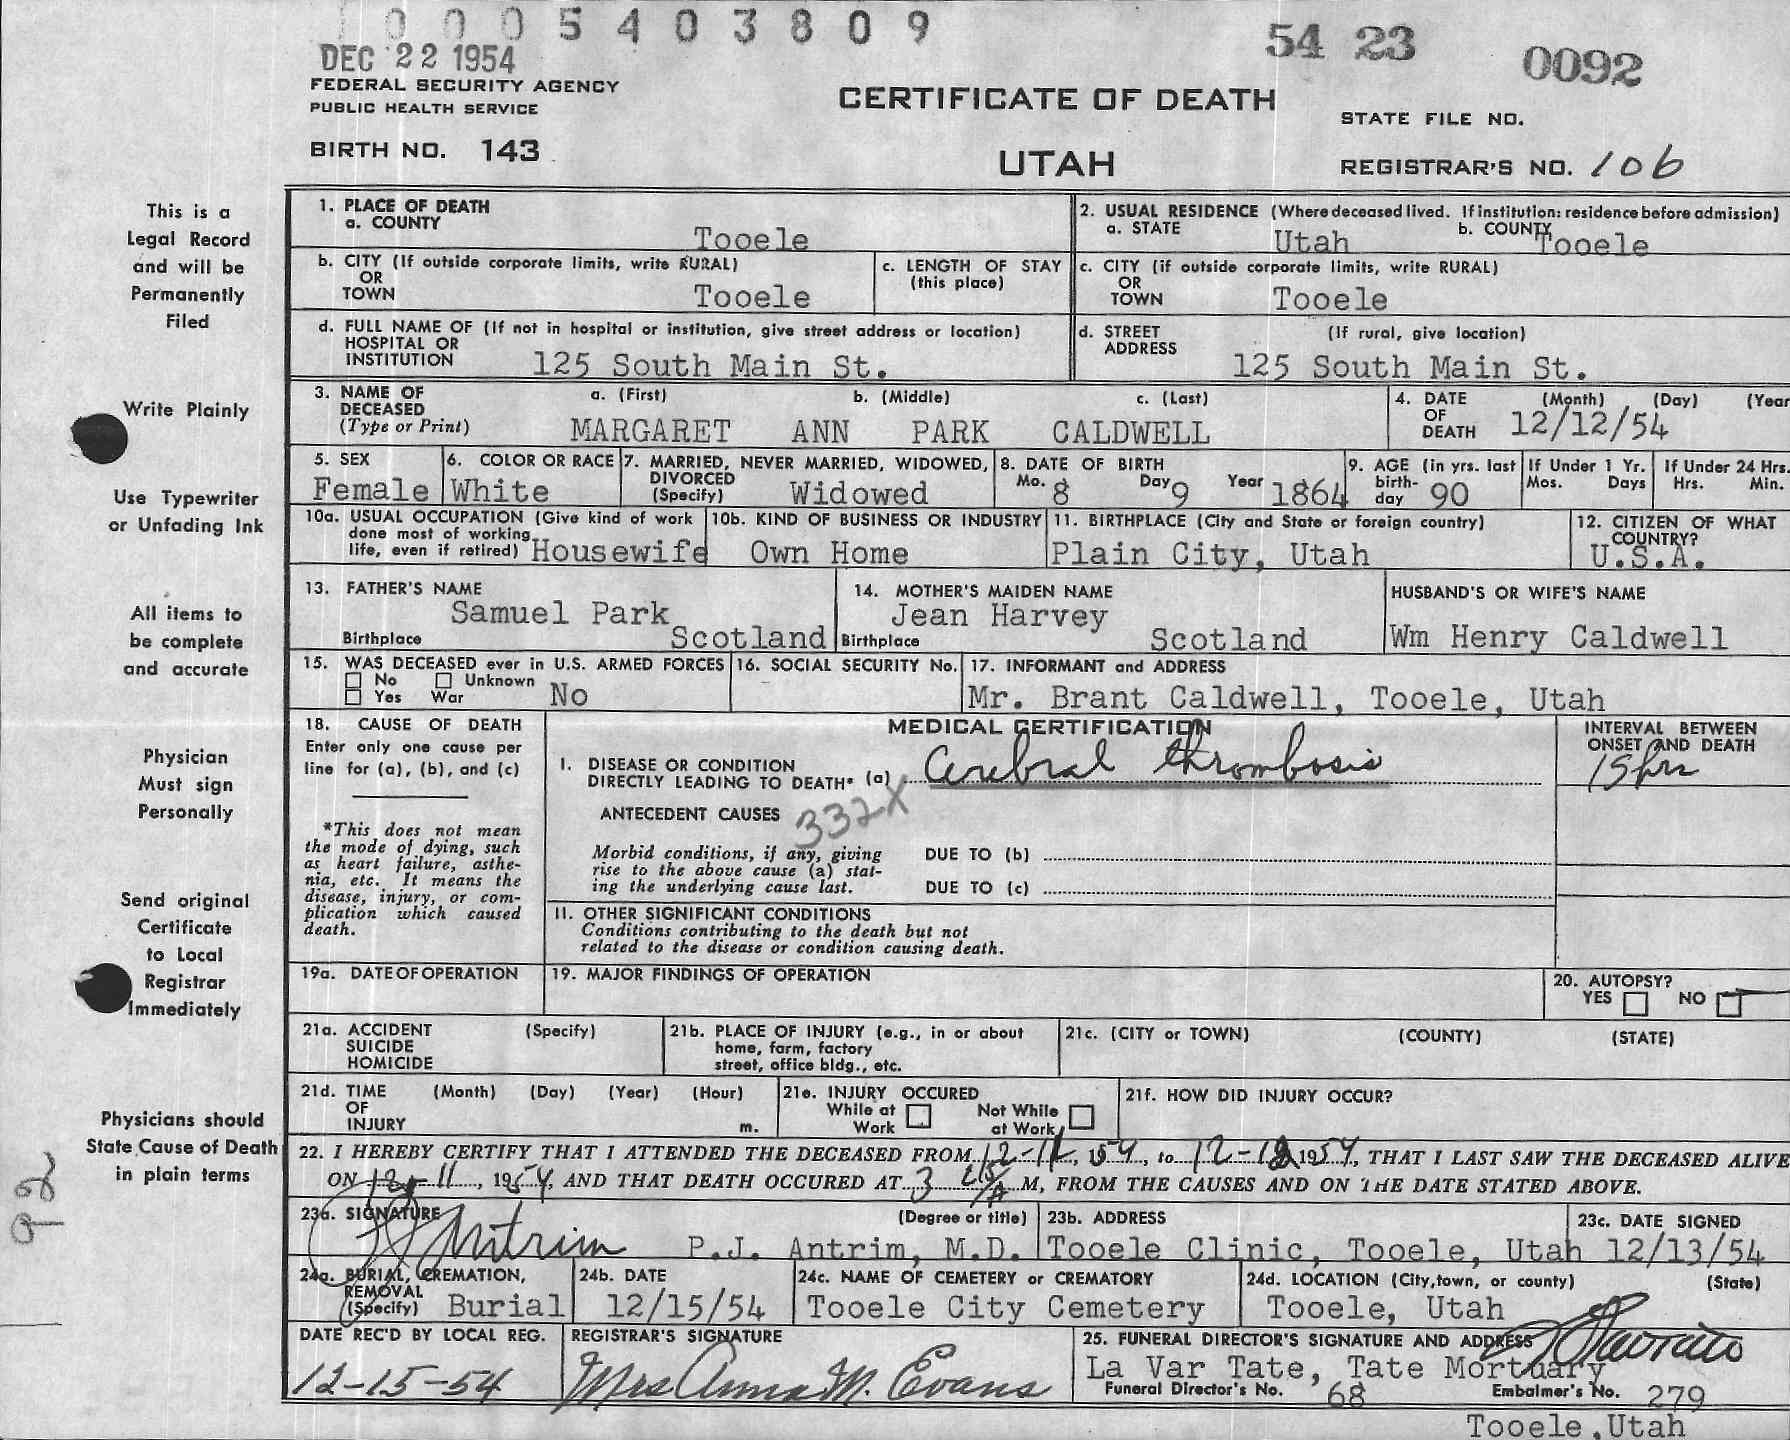 0 0 0 5 4 0 3 8 0 9
DEC 22 1954
54 23 0092
FEDERAL SECURITY AGENCY
PUBLIC HEALTH SERVICE
CERTIFICATE OF DEATH
STATE FILE NO.
BIRTH NO. 143
UTAH
REGISTRAR'S NO. 106
This is a
Legal Record
and will be
Permanently
Filed
Write Plainly
Use Typewriter
or Unfading Ink
All items to
be complete
and accurate
Physician
Must sign
Personally
Send original
Certificate
to Local
Registrar
Immediately
Physicians should
State Cause of Death
in plain terms
1. PLACE OF DEATH
a. COUNTY
Tooele
2. USUAL RESIDENCE (Where deceased lived. If institution: residence before admission)
a. STATE Utah b. COUNTY Tooele
b. CITY (If outside corporate limits, write RURAL)
OR
TOWN Tooele
c. LENGTH OF STAY
(this place)
c. CITY (if outside corporate limits, write RURAL)
OR
TOWN Tooele
d. FULL NAME OF (If not in hospital or institution, give street address or location)
HOSPITAL OR
INSTITUTION 125 South Main St.
d. STREET (If rural, give location)
ADDRESS 125 South Main St.
3. NAME OF a. (First) b. (Middle) c. (Last)
DECEASED
(Type or Print) MARGARET ANN PARK CALDWELL
4. DATE (Month) (Day) (Year
OF
DEATH 12/12/54
5. SEX
Female
6. COLOR OR RACE
White
7. MARRIED, NEVER MARRIED, WIDOWED,
DIVORCED
(Specify) Widowed
8. DATE OF BIRTH
Mo. 8 Day 9 Year 1864
9. AGE (in yrs. last
birth-
day 90
If Under 1 Yr.
Mos. Days
If Under 24 Hrs.
Hrs. Min.
10a. USUAL OCCUPATION (Give kind of work
done most of working
life, even if retired) Housewife
10b. KIND OF BUSINESS OR INDUSTRY
Own Home
11. BIRTHPLACE (City and State or foreign country)
Plain City, Utah
12. CITIZEN OF WHAT
COUNTRY?
U.S.A.
13. FATHER'S NAME
Samuel Park
Birthplace Scotland
14. MOTHER'S MAIDEN NAME
Jean Harvey
Birthplace Scotland
HUSBAND'S OR WIFE'S NAME
Wm Henry Caldwell
15. WAS DECEASED ever in U.S. ARMED FORCES
No Unknown
Yes War No
16. SOCIAL SECURITY No.
17. INFORMANT and ADDRESS
Mr. Brant Caldwell, Tooele, Utah
18. CAUSE OF DEATH
Enter only one cause per
line for (a), (b), and (c)
*This does not mean
the mode of dying, such
as heart failure, asthe-
nia, etc. It means the
disease, injury, or com-
plication which caused
death.
MEDICAL CERTIFICATION
I. DISEASE OR CONDITION
DIRECTLY LEADING TO DEATH* (a) Cerebral thrombosis
INTERVAL BETWEEN
ONSET AND DEATH
15 hrs
ANTECEDENT CAUSES
332X
Morbid conditions, if any, giving
rise to the above cause (a) stat-
ing the underlying cause last.
DUE TO (b)
DUE TO (c)
II. OTHER SIGNIFICANT CONDITIONS
Conditions contributing to the death but not
related to the disease or condition causing death.
19a. DATE OF OPERATION
19. MAJOR FINDINGS OF OPERATION
20. AUTOPSY?
YES NO
21a. ACCIDENT (Specify)
SUICIDE
HOMICIDE
21b. PLACE OF INJURY (e.g., in or about
home, farm, factory
street, office bldg., etc.
21c. (CITY or TOWN) (COUNTY) (STATE)
21d. TIME (Month) (Day) (Year) (Hour)
OF
INJURY m.
21e. INJURY OCCURED
While at Work Not While at Work
21f. HOW DID INJURY OCCUR?
22. I HEREBY CERTIFY THAT I ATTENDED THE DECEASED FROM 12-11, 1954, to 12-12 1954, THAT I LAST SAW THE DECEASED ALIVE
ON 12-11, 1954, AND THAT DEATH OCCURED AT 3 15 A M, FROM THE CAUSES AND ON THE DATE STATED ABOVE.
23a. SIGNATURE (Degree or title)
PJ Antrim P.J. Antrim, M.D.
23b. ADDRESS
Tooele Clinic, Tooele, Utah
23c. DATE SIGNED
12/13/54
24a. BURIAL, CREMATION,
REMOVAL
(Specify) Burial
24b. DATE
12/15/54
24c. NAME OF CEMETERY or CREMATORY
Tooele City Cemetery
24d. LOCATION (City, town, or county) (State)
Tooele, Utah
DATE REC'D BY LOCAL REG.
12-15-54
REGISTRAR'S SIGNATURE
Mrs Anna M. Evans
25. FUNERAL DIRECTOR'S SIGNATURE AND ADDRESS
La Var Tate, Tate Mortuary
Funeral Director's No. 68 Embalmer's No. 279
Tooele, Utah